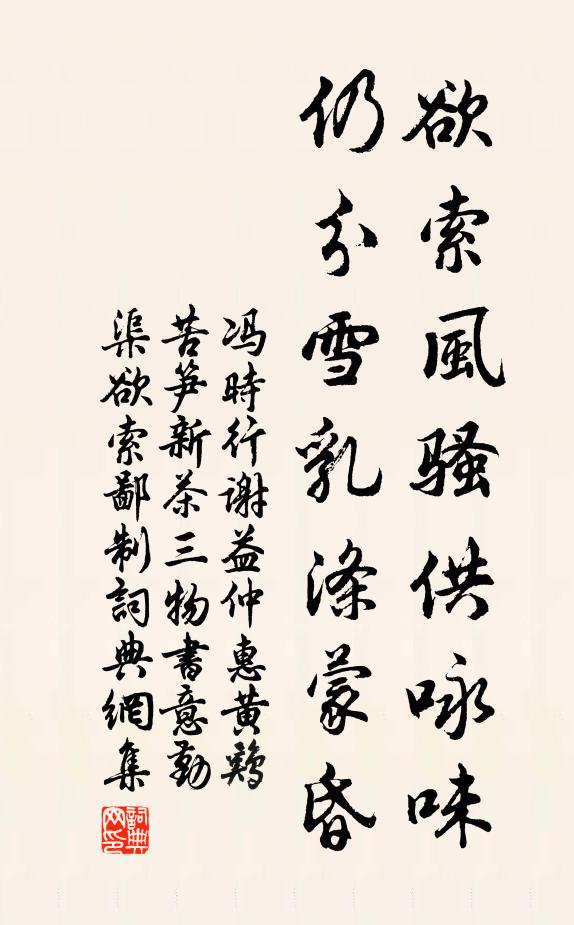 欲索風騷供咏味
仍分雪乳滌蒙昏
冯時行謝益仲惠黃鷄
苦笋新茶三物書意勤
渠欲索鄙制詞典網集
詞典網印